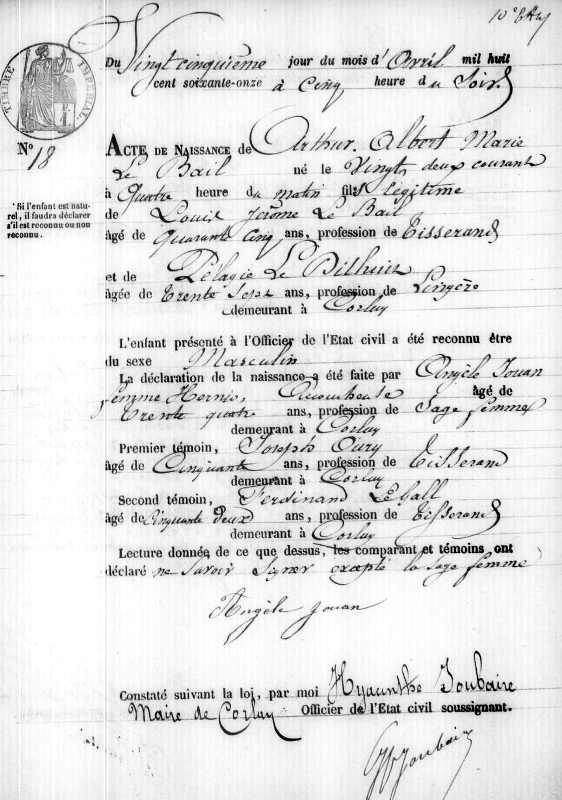 Du Vingt cinquième jour du mois d'Avril mil huit
cent soixante-onze à Cinq heure du Soir
TIMBRE IMPÉRIAL
N° 18
ACTE DE NAISSANCE de Arthur Albert Marie
Le Bail né le Vingt deux courant
à Quatre heure du matin fils légitime
de Louis Jérôme Le Bail
âgé de quarante Cinq ans, profession de Tisserand
' Si l'enfant est natu-
rel, il faudra déclarer
s'il est reconnu ou non
reconnu.
et de Pélagie Le
âgée de trente Sept ans, profession de Lingère
demeurant à Corlay
L'enfant présenté à l'Officier de l'Etat civil a été reconnu être
du sexe Masculin
La déclaration de la naissance a été faite par Angèle Jouan
femme âgé de
trente quatre ans, profession de Sage femme
demeurant à Corlay
Premier témoin, Joseph Oury
âgé de Cinquante ans, profession de Tisserand
demeurant à Corlay
Second témoin, Ferdinand LeGall
âgé de Cinquante Deux ans, profession de Tisserand
demeurant à Corlay
Lecture donnée de ce que dessus, les comparant et témoins ont
déclaré ne savoir Signer excepté la sage femme
Angèle Jouan
Constaté suivant la loi, par moi Hyacinthe Joubaire
Maire de Corlay Officier de l'Etat civil soussignant.
Joubaire